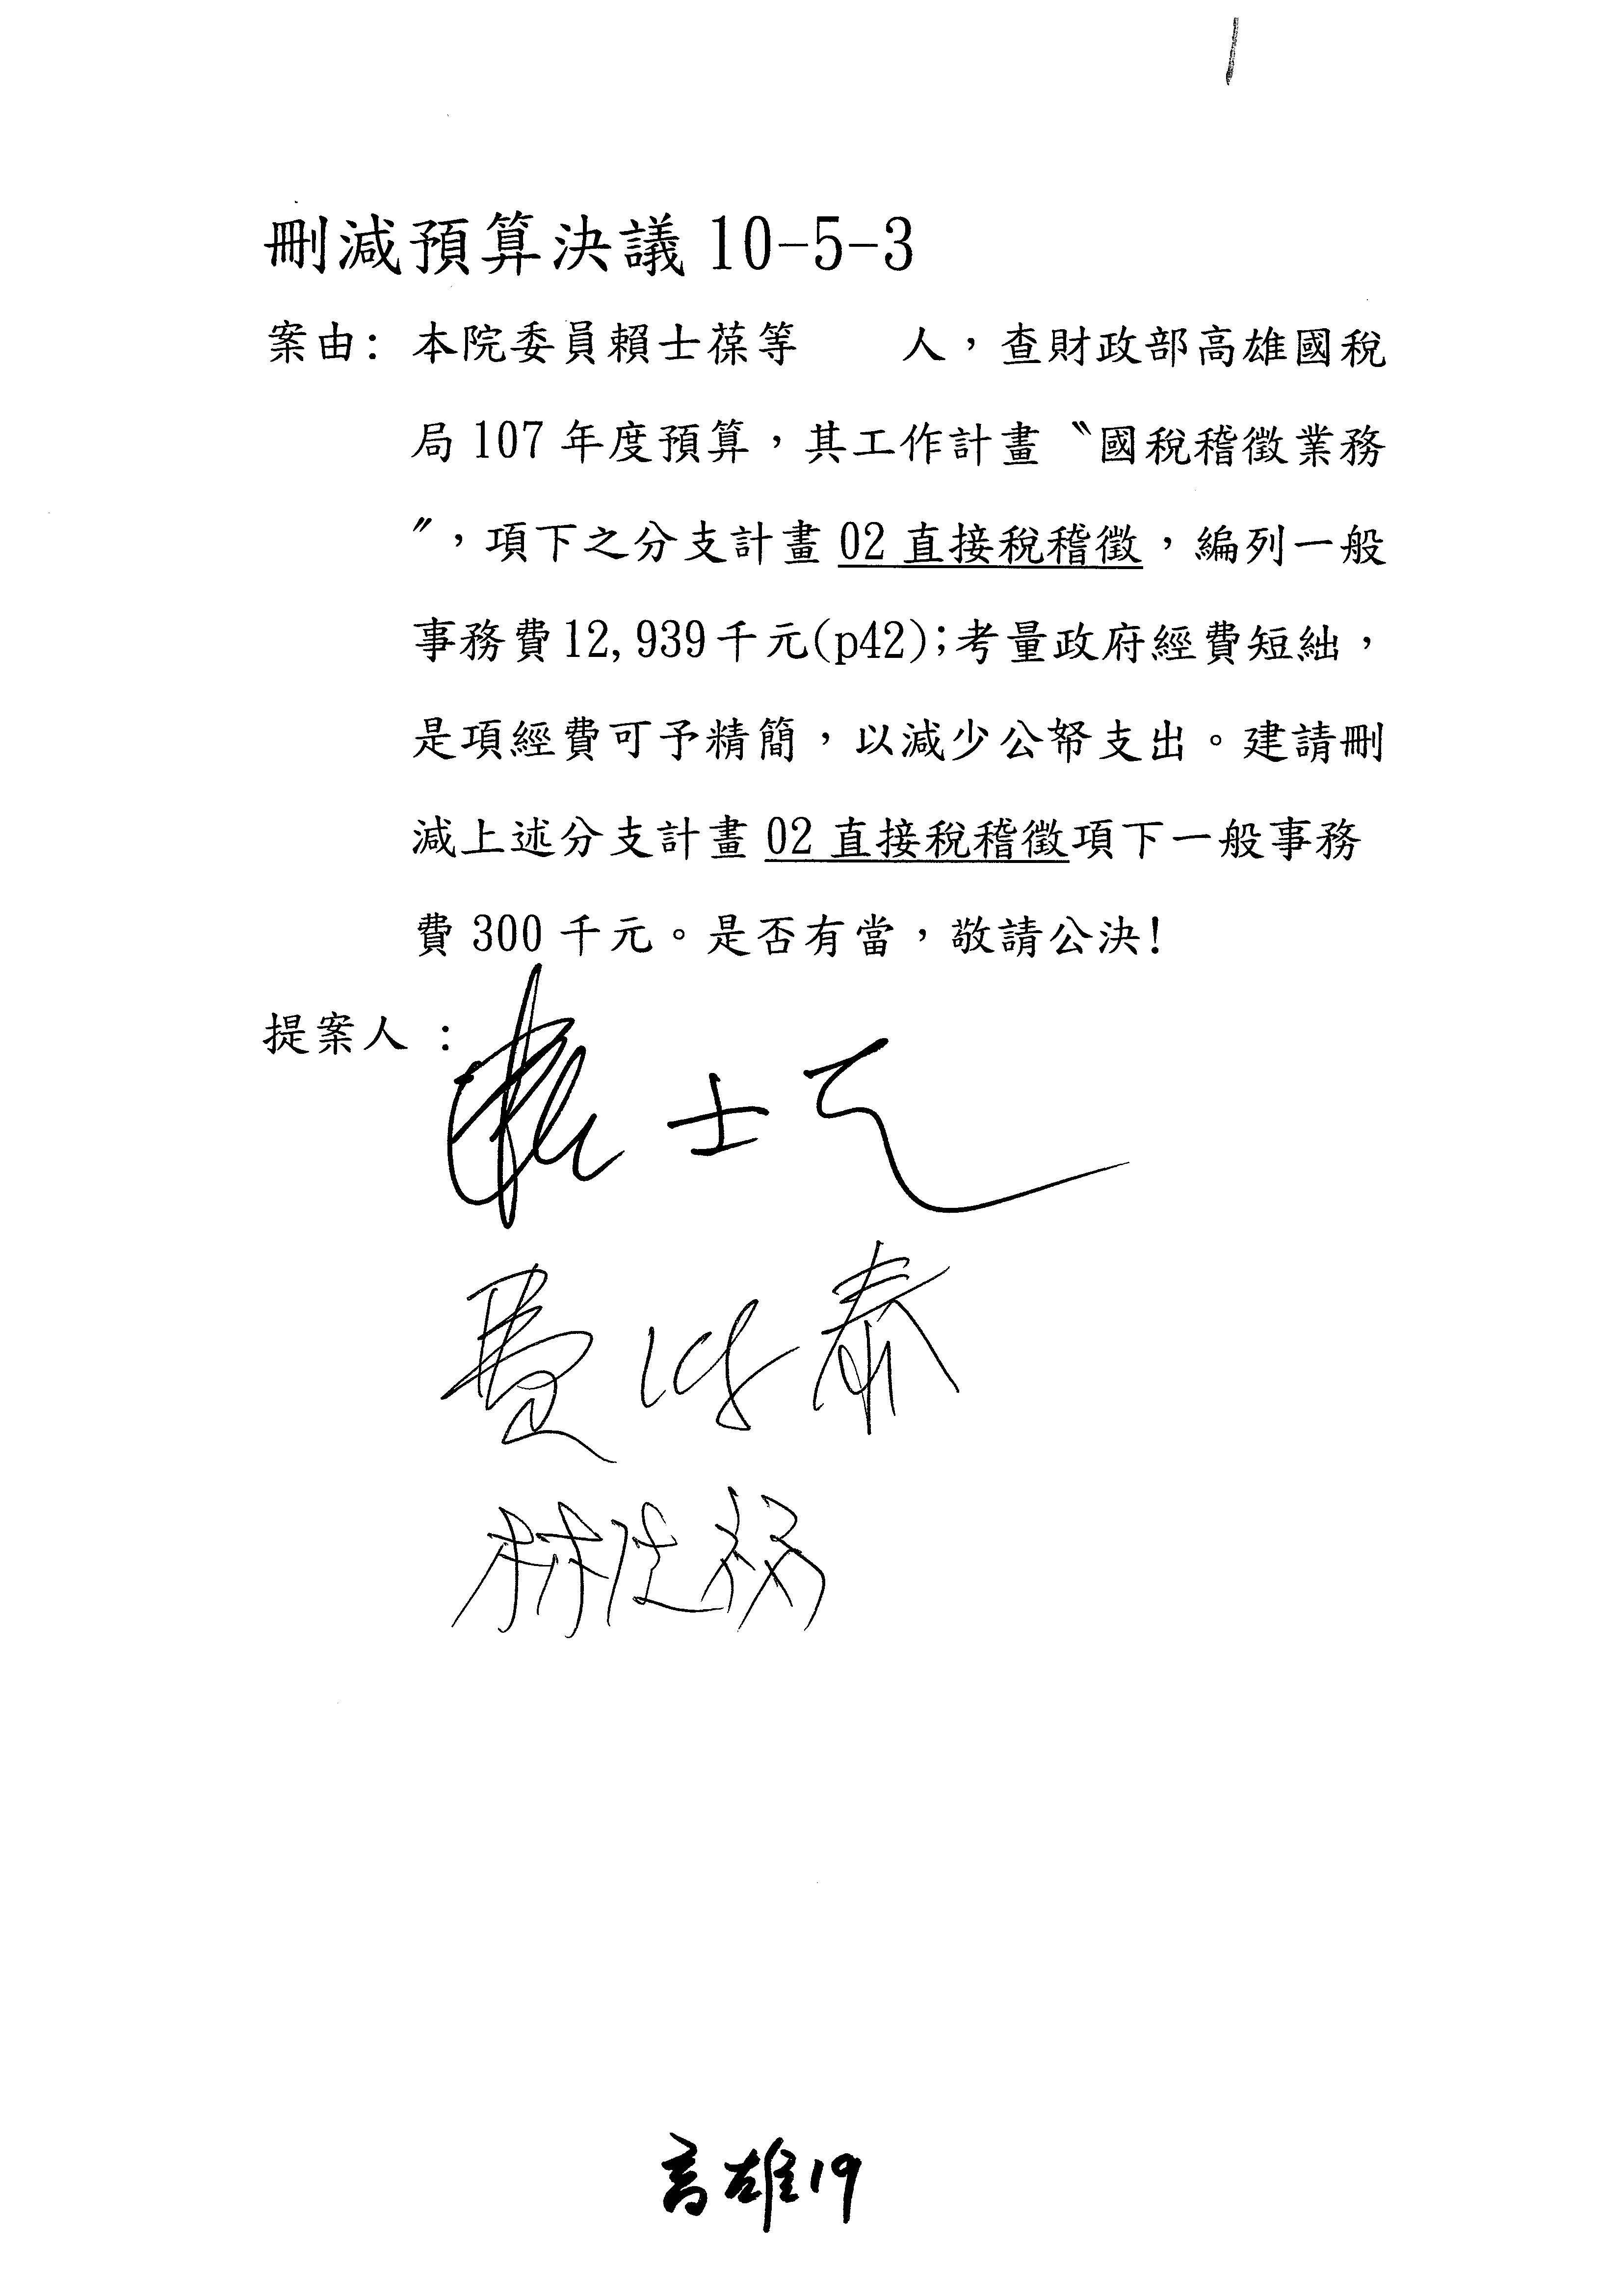 刪減預算決議 10-5-3
案由: 本院委員賴士葆等　　人，查財政部高雄國稅
局 107 年度預算，其工作計畫〝國稅稽徵業務
〞，項下之分支計畫 02 直接稅稽徵，編列一般
事務費 12,939 千元(p42);考量政府經費短絀，
是項經費可予精簡，以減少公帑支出。建請刪
減上述分支計畫 02 直接稅稽徵項下一般事務
費 300 千元。是否有當，敬請公決!
提案人 :
費鴻泰
高雄19